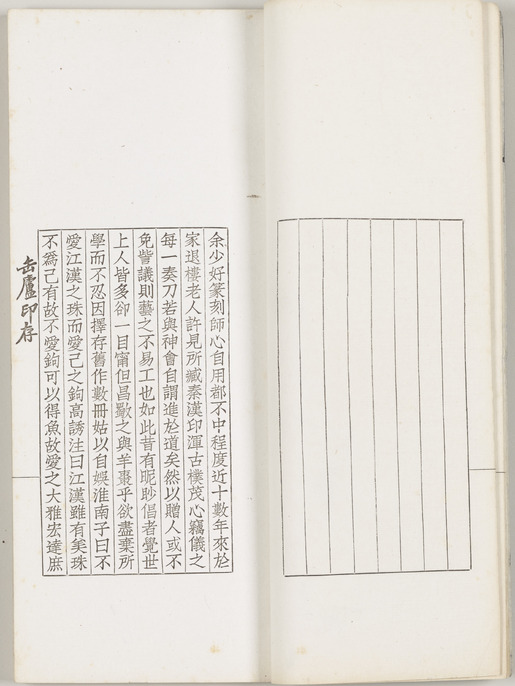 余少好篆刻師心自用都不中程度近十數年來於
家退樓老人許見所臧秦漢印渾古樸茂心竊儀之
每一奏刀若與神會自謂進於道矣然以贈人或不
免訾議則藝之不易工也如此昔有昵眇倡者覺世
上人皆多卻一目甯但昌歜之與羊棗乎欲盡棄所
學而不忍因擇存舊作數冊姑以自娛淮南子曰不
愛江漢之珠而愛己之鉤高誘注曰江漢雖有美珠
不爲己有故不愛鉤可以得魚故愛之大雅宏達庶
缶廬印存